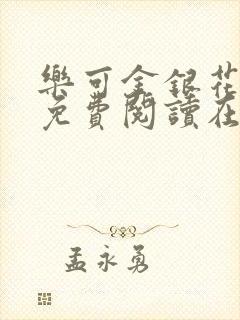 樂可金銀花
免費閱讀在
孟永勇